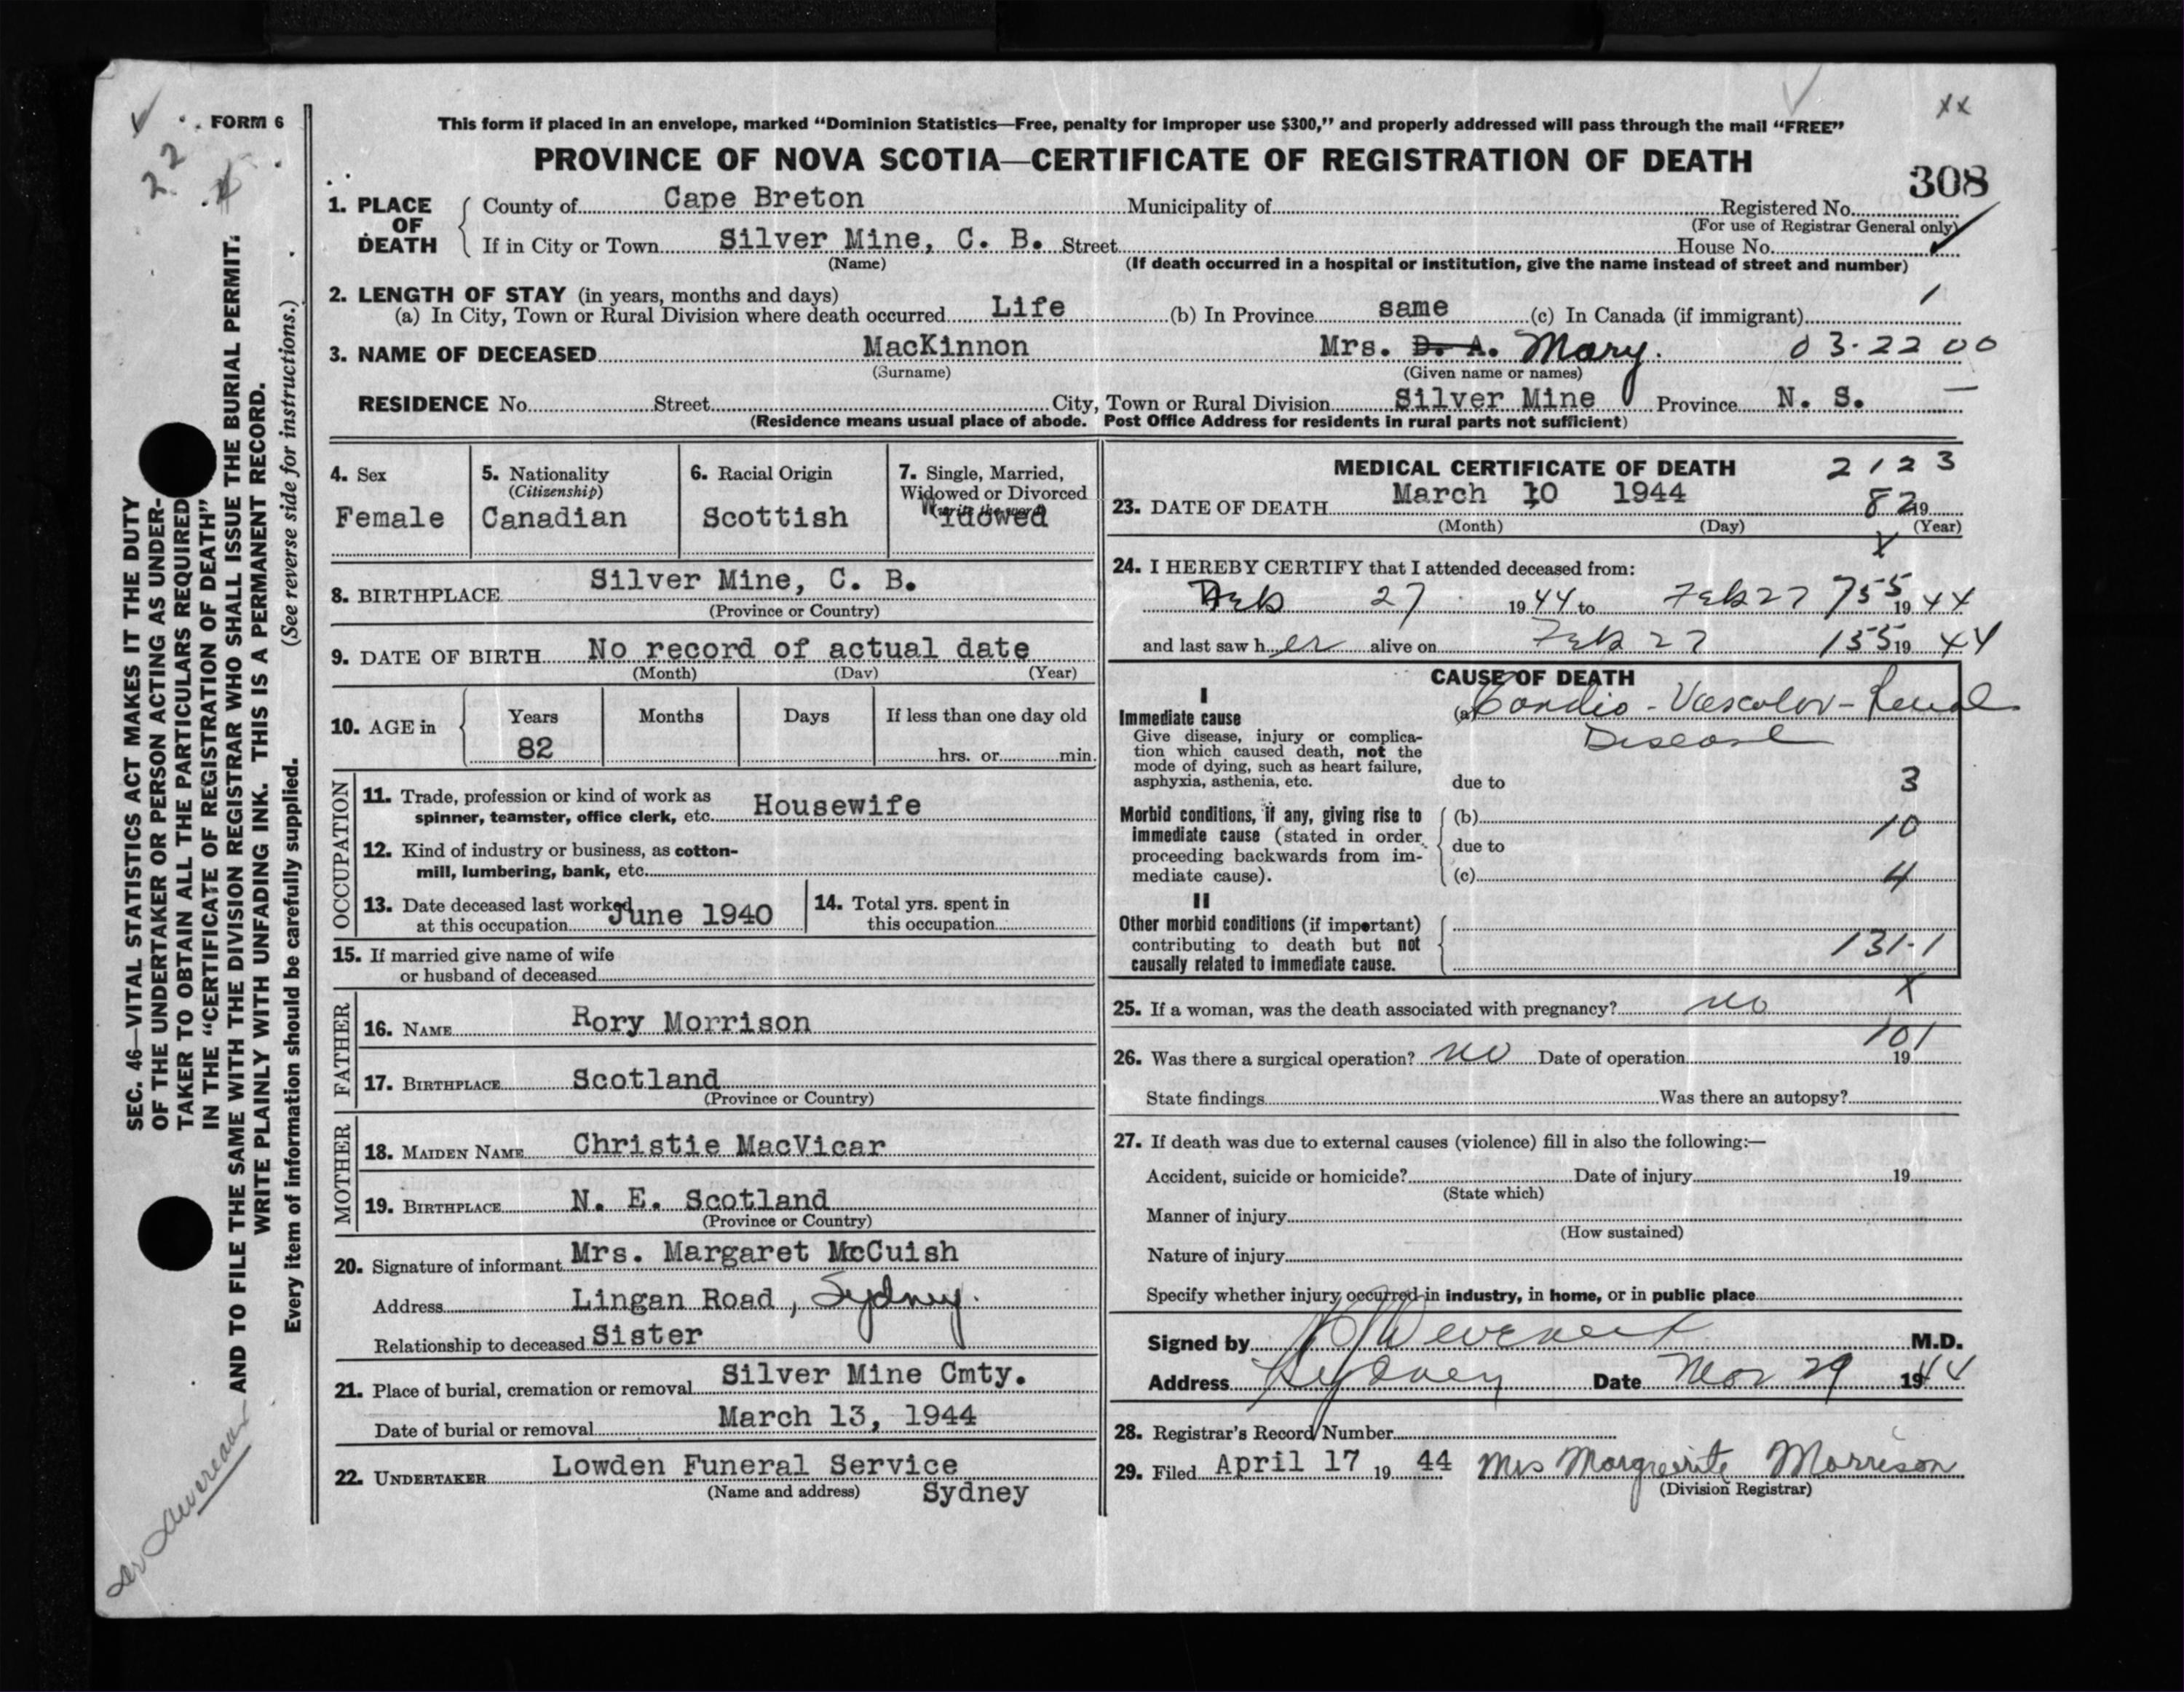 FORM 6
22
xx
This form if placed in an envelope, marked “Dominion Statistics—Free, penalty for improper use $300,” and properly addressed will pass through the mail “FREE”
PROVINCE OF NOVA SCOTIA—CERTIFICATE OF REGISTRATION OF DEATH
308
1. PLACE OF DEATH
County of Cape Breton Municipality of Registered No.
(For use of Registrar General only)
If in City or Town Silver Mine, C. B. Street House No.
(Name) (If death occurred in a hospital or institution, give the name instead of street and number)
2. LENGTH OF STAY (in years, months and days)
(a) In City, Town or Rural Division where death occurred Life (b) In Province same (c) In Canada (if immigrant)
3. NAME OF DECEASED MacKinnon Mrs. D. A. Mary. 03-22 00
(Surname) (Given name or names)
RESIDENCE No. Street City, Town or Rural Division Silver Mine Province N. S.
(Residence means usual place of abode. Post Office Address for residents in rural parts not sufficient)
4. Sex
Female
5. Nationality
(Citizenship)
Canadian
6. Racial Origin
Scottish
7. Single, Married,
Widowed or Divorced
(write the word)
Widowed
8. BIRTHPLACE Silver Mine, C. B.
(Province or Country)
9. DATE OF BIRTH No record of actual date
(Month) (Day) (Year)
10. AGE in Years Months Days If less than one day old
82 hrs. or min.
OCCUPATION
11. Trade, profession or kind of work as
spinner, teamster, office clerk, etc. Housewife
12. Kind of industry or business, as cotton-
mill, lumbering, bank, etc.
13. Date deceased last worked
at this occupation June 1940
14. Total yrs. spent in
this occupation
15. If married give name of wife
or husband of deceased
FATHER
16. NAME Rory Morrison
17. BIRTHPLACE Scotland
(Province or Country)
MOTHER
18. MAIDEN NAME Christie MacVicar
19. BIRTHPLACE N. E. Scotland
(Province or Country)
20. Signature of informant Mrs. Margaret McCuish
Address Lingan Road, Sydney.
Relationship to deceased Sister
21. Place of burial, cremation or removal Silver Mine Cmty.
Date of burial or removal March 13, 1944
22. UNDERTAKER Lowden Funeral Service
(Name and address) Sydney
MEDICAL CERTIFICATE OF DEATH 2123
23. DATE OF DEATH March 10 1944 82 19
(Month) (Day) (Year)
24. I HEREBY CERTIFY that I attended deceased from:
Feb 27 1944 to Feb 27 755 1944
and last saw her alive on Feb 27 155 1944
CAUSE OF DEATH
I
Immediate cause
Give disease, injury or complica-
tion which caused death, not the
mode of dying, such as heart failure,
asphyxia, asthenia, etc.
(a) Cardio-Vascular-Renal
Disease
due to 3
Morbid conditions, if any, giving rise to
immediate cause (stated in order
proceeding backwards from im-
mediate cause).
(b) 10
due to
(c) 4
II
Other morbid conditions (if important)
contributing to death but not
causally related to immediate cause.
131-1
x
25. If a woman, was the death associated with pregnancy? no
101
26. Was there a surgical operation? no Date of operation 19
State findings Was there an autopsy?
27. If death was due to external causes (violence) fill in also the following:—
Accident, suicide or homicide? Date of injury 19
(State which)
Manner of injury
(How sustained)
Nature of injury
Specify whether injury occurred in industry, in home, or in public place
Signed by M.D.
Address Sydney Date Mar 29 1944
28. Registrar's Record Number
29. Filed April 17 19 44 Mrs Marguerite Morrison
(Division Registrar)
SEC. 46—VITAL STATISTICS ACT MAKES IT THE DUTY
OF THE UNDERTAKER OR PERSON ACTING AS UNDER-
TAKER TO OBTAIN ALL THE PARTICULARS REQUIRED
IN THE “CERTIFICATE OF REGISTRATION OF DEATH”
AND TO FILE THE SAME WITH THE DIVISION REGISTRAR WHO SHALL ISSUE THE BURIAL PERMIT.
WRITE PLAINLY WITH UNFADING INK. THIS IS A PERMANENT RECORD.
Every item of information should be carefully supplied. (See reverse side for instructions.)